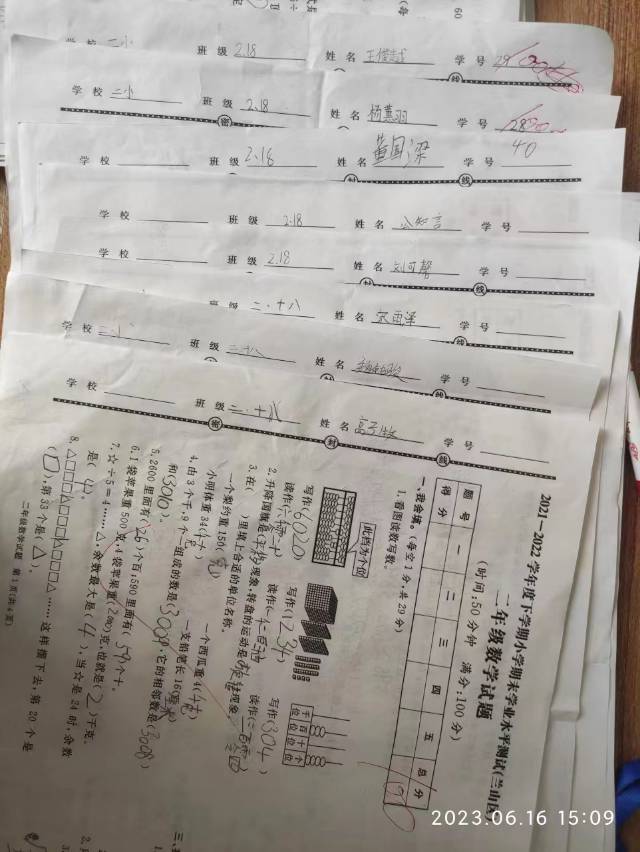 学校 二小 班级 2.18 姓名 学号 29
学校 二小 班级 2.18 姓名 杨慧羽 学号 28
密 线
学校 班级 2.18 姓名 黄国梁 学号 40
封 线
学校 班级 2.18 姓名 公知言 学号
学校 班级 2.18 姓名 刘可馨 学号
封 线
班级 二.十八 姓名 宋雨泽 学号
线
学校 二小 班级 二十八 姓名 学号
封 线
学校 班级 二.十八 姓名 学号
密 封 线
2021—2022学年度下学期小学期末学业水平测试(兰山区)
二年级数学试题
(时间:50分钟 满分:100分)
题号 一 二 三 四 五 总分
得分
一、我会填。(每空1分,共29分)
1.看图读数写数。
此档为个位
千位 百位 十位 个位
写作( ) 写作(1234) 写作(304)
读作( ) 读作( ) 读作( )
2.升降国旗是(平移)现象,转盘的运动是(旋转)现象。
3.在( )里填上合适的单位名称。
一个梨约重150(克) 一个西瓜重4(千克)
小明体重34(千克) 一支铅笔长16(厘米)
4.由3个千、9个一组成的数是(3009),它的相邻数是(3008)
和(3010)。
5.2600里面有(26)个百;590里面有(59)个十。
6.1袋苹果重500克,4袋苹果重(2000)克,也就是(2)千克。
7.☆÷5=4……△,余数最大是(4),当☆是24时,余数
是(4)。
8.△□□□△□□□△□□□△……这样摆下去,第20个是
(□),第33个是(△)。
二年级数学试题 第1页(共4页)
2023.06.16 15:09